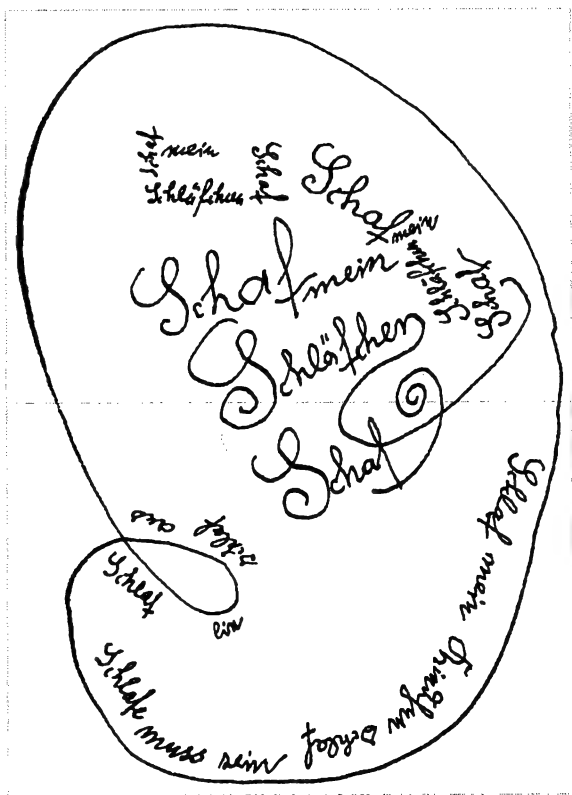 Schaf mein
Schläfchen Schaf
Schaf mein
Schläfchen Schaf
Schaf mein
Schläfchen
Schaf
Schlaf mein
Schlaf
Schlafe muss sein
Schlaf ein
Schlaf aus